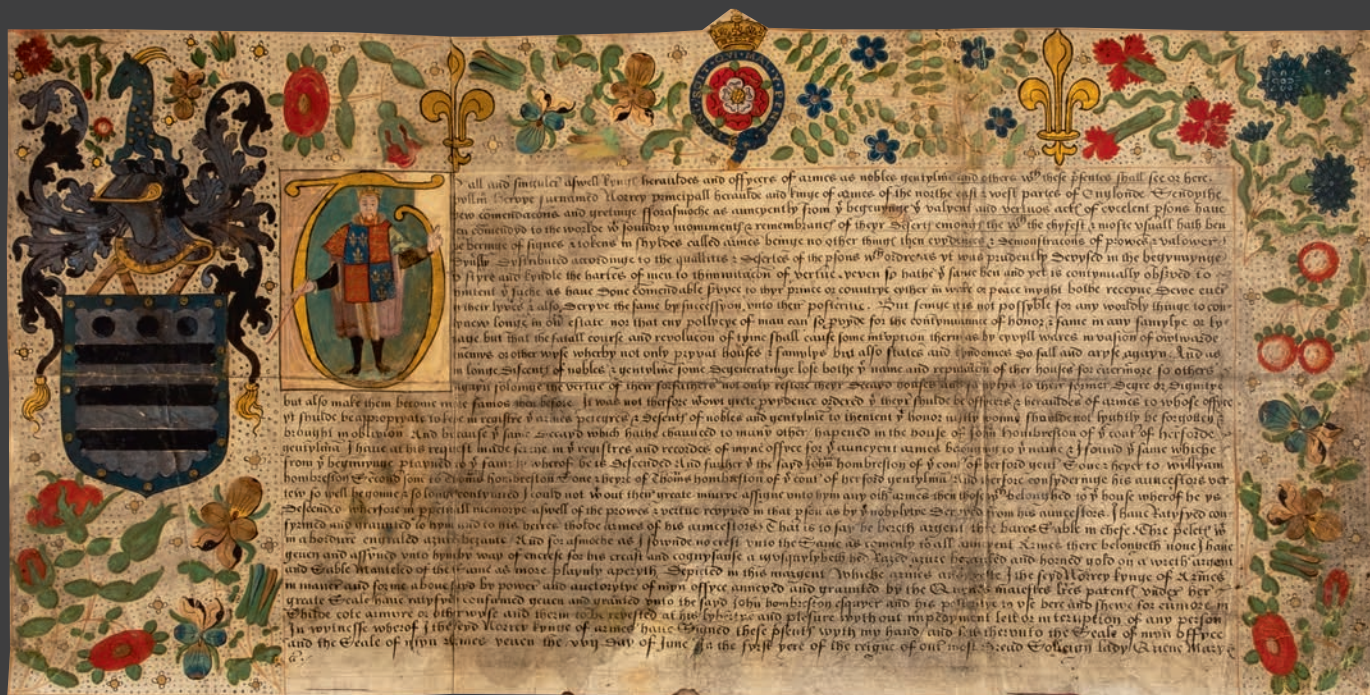 SOYT QVI MAL Y PENCE
all and singuler aswell kyngs herauldes and offycers of armes as nobles gentylme and others wch these psentes shall see or here.
surnamed Norrey principall heraulde and kinge of armes of the northe east & west partes of Englonde Sendythe
comendacons and gretinge fforasmoche as auncyently from ye begynynge ye valyent and vertuos actes of excelent psons have
to the worlde wt soundry monuments & remembrances of theyr Deserts emongst the wch the chyfest & moste usuall hath ben
beringe of signes & tokens in shyldes called armes beinge no other things then evydences & Demonstracons of prowes & valower
Dystributed accordinge to the qualities & Desertes of the psons wch ordre as yt was prudently Devysed in the begynnynge
styre and kyndle the hartes of men to of vertue, even so hathe ye same ben and yet is contynually observed to
suche as have Done comendable svyce to theyr prince or countrye eyther in warre or peace myght bothe receyve Dewe
in their lyves & also Deryve the same by succession unto their posteritie. But seinge it is not possyble for any worldly thinge to con
longe in on estate nor that eny pollycye of man can so pvyde for the contynuance of honor & fame in any famylye or ly
age but that the fatall course and revolucon of tyme shall cause some intvption therin as by cyvyll warres invasion of owtwarde
or other wyse wherby not only pryvat houses & famylys but also states and kyndomes Do fall and aryse agayn. And as
longe Discents of nobles & gentylme some Degeneratinge lose bothe ye name and reputacon of ther houses for evermore so others
agayn folowinge the vertue of their forfathers not only restore theyr Decayd houses and famylys to their former Degre or Dignitye
but also make them become more famos then before. It was not therfore wtowt grete prudence ordered yt ther shulde be officers & herauldes of armes to whose offyce
yt shulde be appropryate to kepe in registre ye armes petegres & Desents of nobles and gentylme to thentent ye honor shoulde not lyghtly be forgotten &
brought in oblivion And because ye same Decayd which hathe chaunced to many other hapened in the house of John hombreston of ye count of herforde
gentylma I have at his request made serche in ye registres and recordes of myne offyce for ye auncyent armes belonginge to ye name & I found ye same whiche
from ye begynynge ptayned to ye famyly wherof he is Descended And further yt the sayd John hombreston of ye count of herford gent Sone & heyer to wyllyam
hombreston Second sone to Thoms hombreston Sone & heyre of Thoms hombreston of ye count of herford gentylma And therfore consyderinge his auncestors ver
tew so well begonne & so longe contynued I could not wt out their greate iniurye assigne unto hym any other armes then those wch belonghed to ye house wherof he ys
Descended wherfore in ppetuall memorye aswell of the prowes & vertue revyved in that pson as by ye nobylytye Deryved from his auncestors. I have Ratyfyed con
fyrmed and graunted to hym and to his heires tholde armes of his auncestors: That is to say he bereth argent thre bares Sable in chefe Thre pelets wt
in a bordure engraled azure bezante And for asmoche as I fownde no crest unto the Same as comenly to all auncyent Armes there belongeth none I have
geven and assyned unto hym by way of encrese for his creast and cognysaunse a hed Razed azure bezanted and horned gold on a wreth argent
and Sable Manteled of the same as more playnly aperyth Depicted in this margent Whiche armes and creste I the seyd Norrey kynge of Armes
in maner and forme abouesayd by power and auctorytye of myn offyce annexed and graunted by the Quenes maiestes lres patents under her
greate Seale have ratyfyed confirmed geven and granted unto the sayd John hombreston esquyer and his posteritye to use bere and shewe for evmore in
Shilde cote armure or otherwyse and therin to be revested at his lybertye and plesure wythout impedyment lett or interuption of any person
In witnesse wherof I the seyd Norrey kynge of armes have Signed these psents wyth my hand and set therunto the Seale of myn Offyce
and the Seale of myn Armes geven the Day of June In the fyrst yere of the reigne of our most Dread Soveraign lady Quene Mary